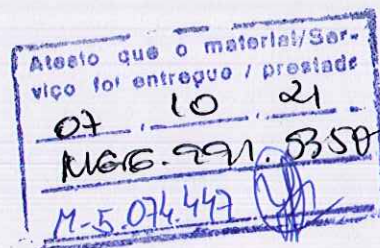 Atesto que o material/Ser-
viço foi entregue / prestado
07 10 21
M-5.074.447